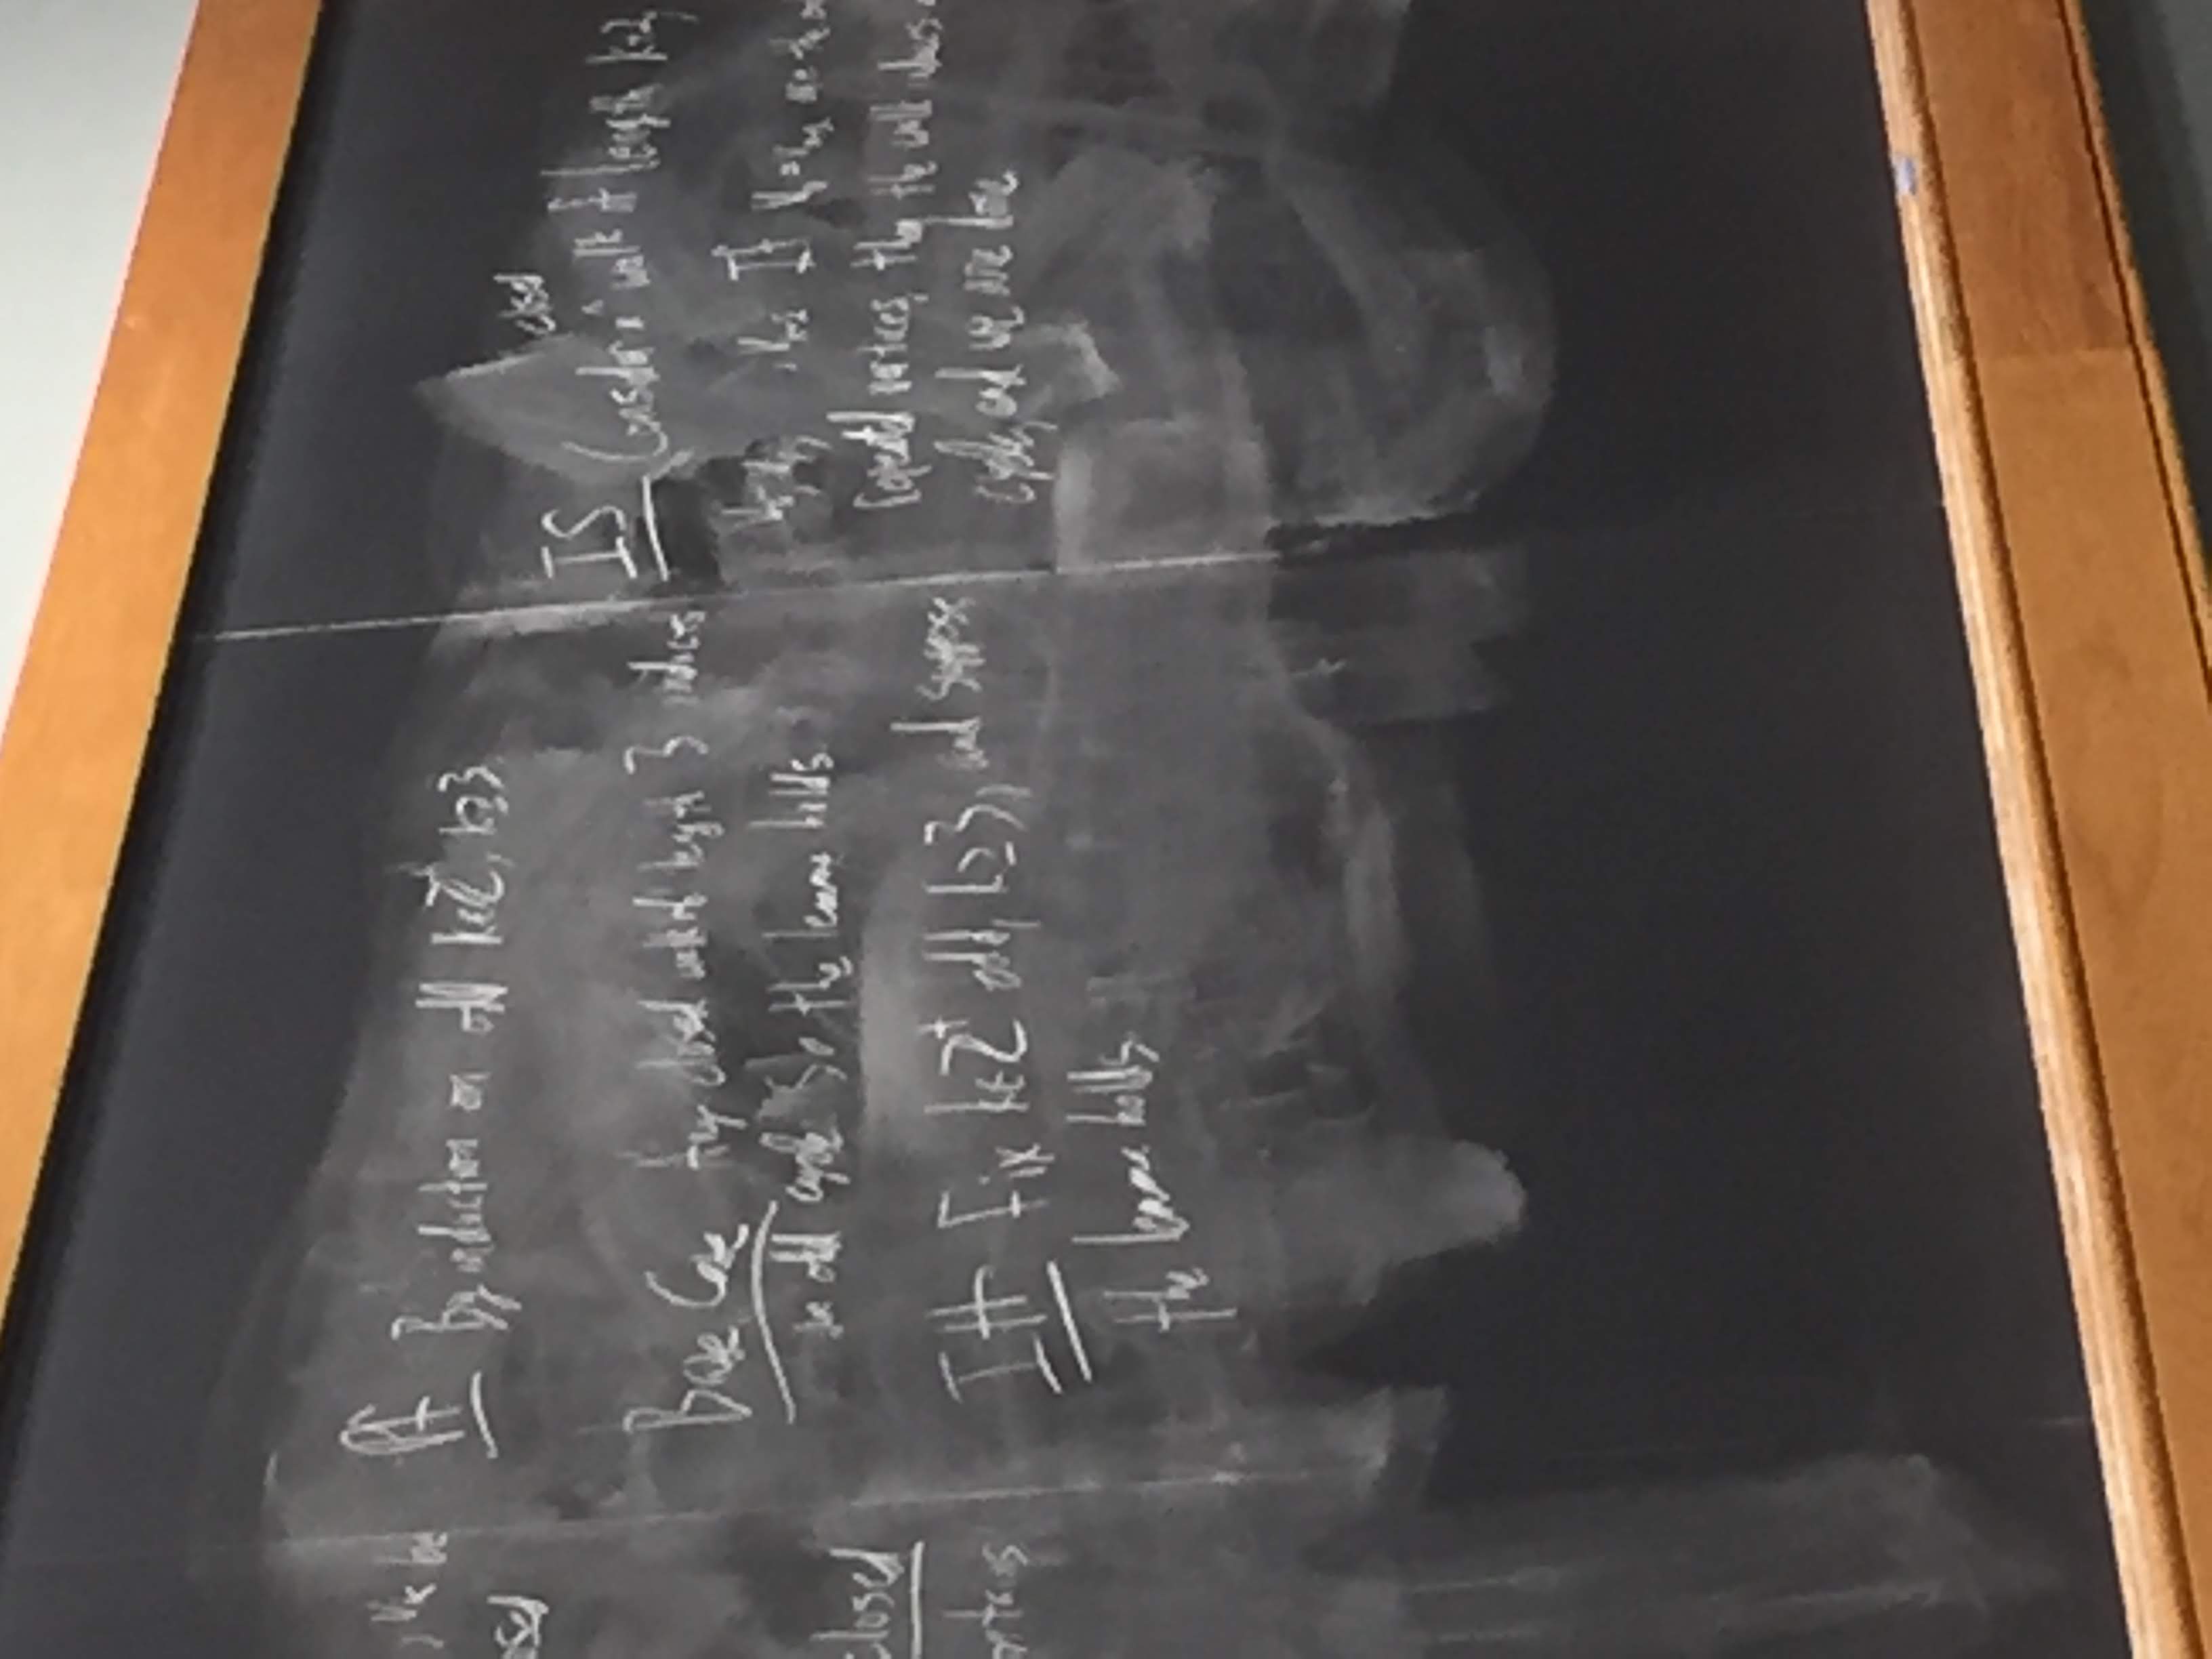 , vₖ be
osed
closed
ontains
Pf By induction on odd k∈Z⁺, k≥3.
Base Case Any closed walk of length 3 induces
an odd cycle. So the lemma holds.
IH Fix k∈Z⁺ odd, k≥3, and suppose
the lemma holds.
closed
IS Consider a ^ walk of length k+2,
v₀, v₁, , vₖ₊₂ If v₀ = vₖ₊₂ are the on
repeated vertices, then the walk induces a
cycle, and we are done.